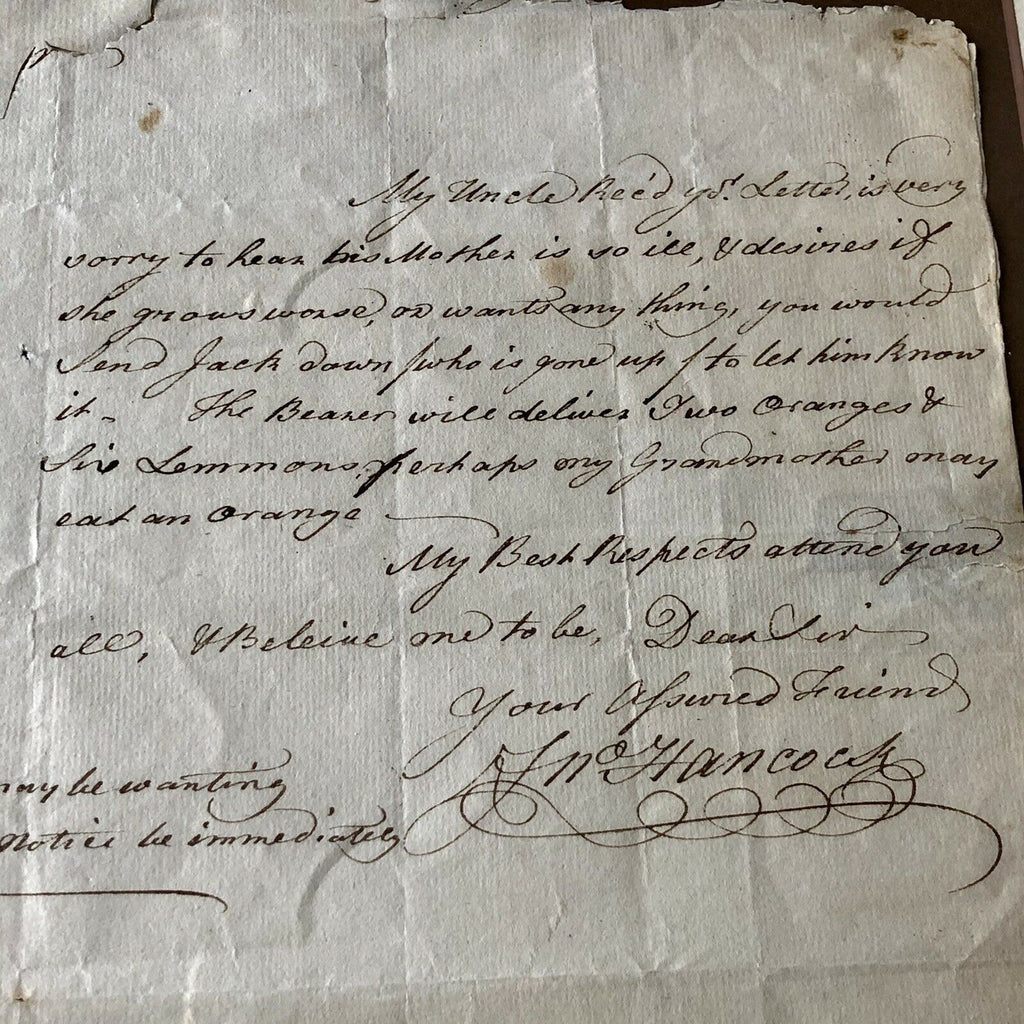 My Uncle Rec'd yor. Letter, is very
sorry to hear his Mother is so ill, & desires if
she grows worse, or wants any thing, you would
Send Jack down /who is gone up/ to let him know
it - The Bearer will deliver Two Oranges &
Six Lemmons, perhaps my Grandmother may
eat an Orange
My Best Respects attend you
all, & Beleive me to be, Dear Sir
Your Assured Friend
Jno Hancock
may be wanting
Notice be immediately